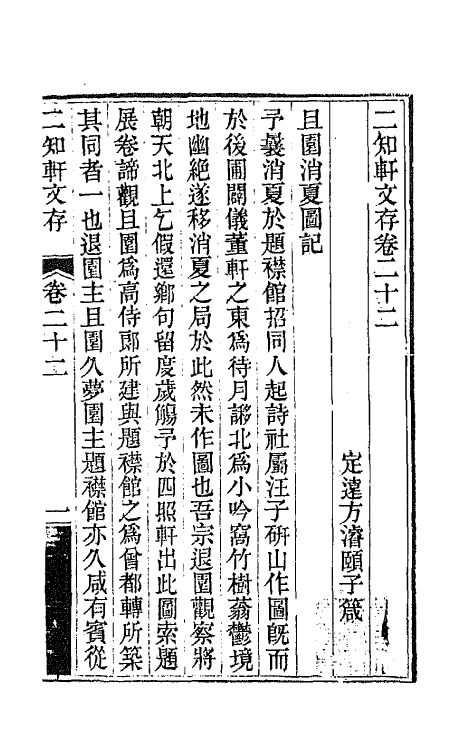 二知軒文存卷二十二
定遠方濬頤子箴
且園消夏圖記
予曩消夏於題襟館招同人起詩社屬汪子硏山作圖旣而
於後圃闢儀董軒之東爲待月謻北爲小吟窩竹樹蓊鬱境
地幽絶遂移消夏之局於此然未作圖也吾宗退園觀察將
朝天北上乞假還鄉句留度歲觴予於四照軒出此圖索題
展卷諦觀且園爲高侍郞所建與題襟館之爲曾都轉所築
其同者一也退園主且園久夢園主題襟館亦久咸有賓從
二知軒文存
卷二十二
一